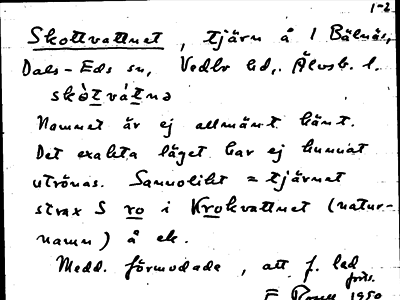 1-2
Skottvattnet, tjärn å 1 Bälnäs,
Dals-Eds sn, Vedbo hd, Älvsb. l.
skòtvátnə
Namnet är ej allmänt känt.
Det exakta läget har ej kunnat
utrönas. Sannolikt = tjärnet
strax S ro i Krokvattnet (natur-
namn) å ek.
Medd. förmodade, att f. led
förts.
1950